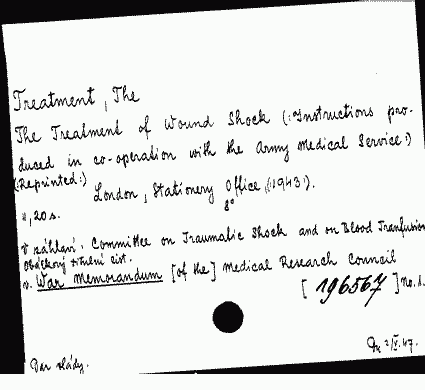 Treatment, The
The Treatment of Wound Shock (:Instructions pro-
duced in co-operation with the Army Medical Service:)
(:Reprinted:) London, Stationery Office, (:1943:).
8°
20 s.
V záhlaví: Committee on Traumatic Shock and on Blood Tranfusion
Obálkový titulní list.
v. War Memorandum [of the] Medical Research Council
[196567] No. 1.
Dar vlády.
IV. 47.